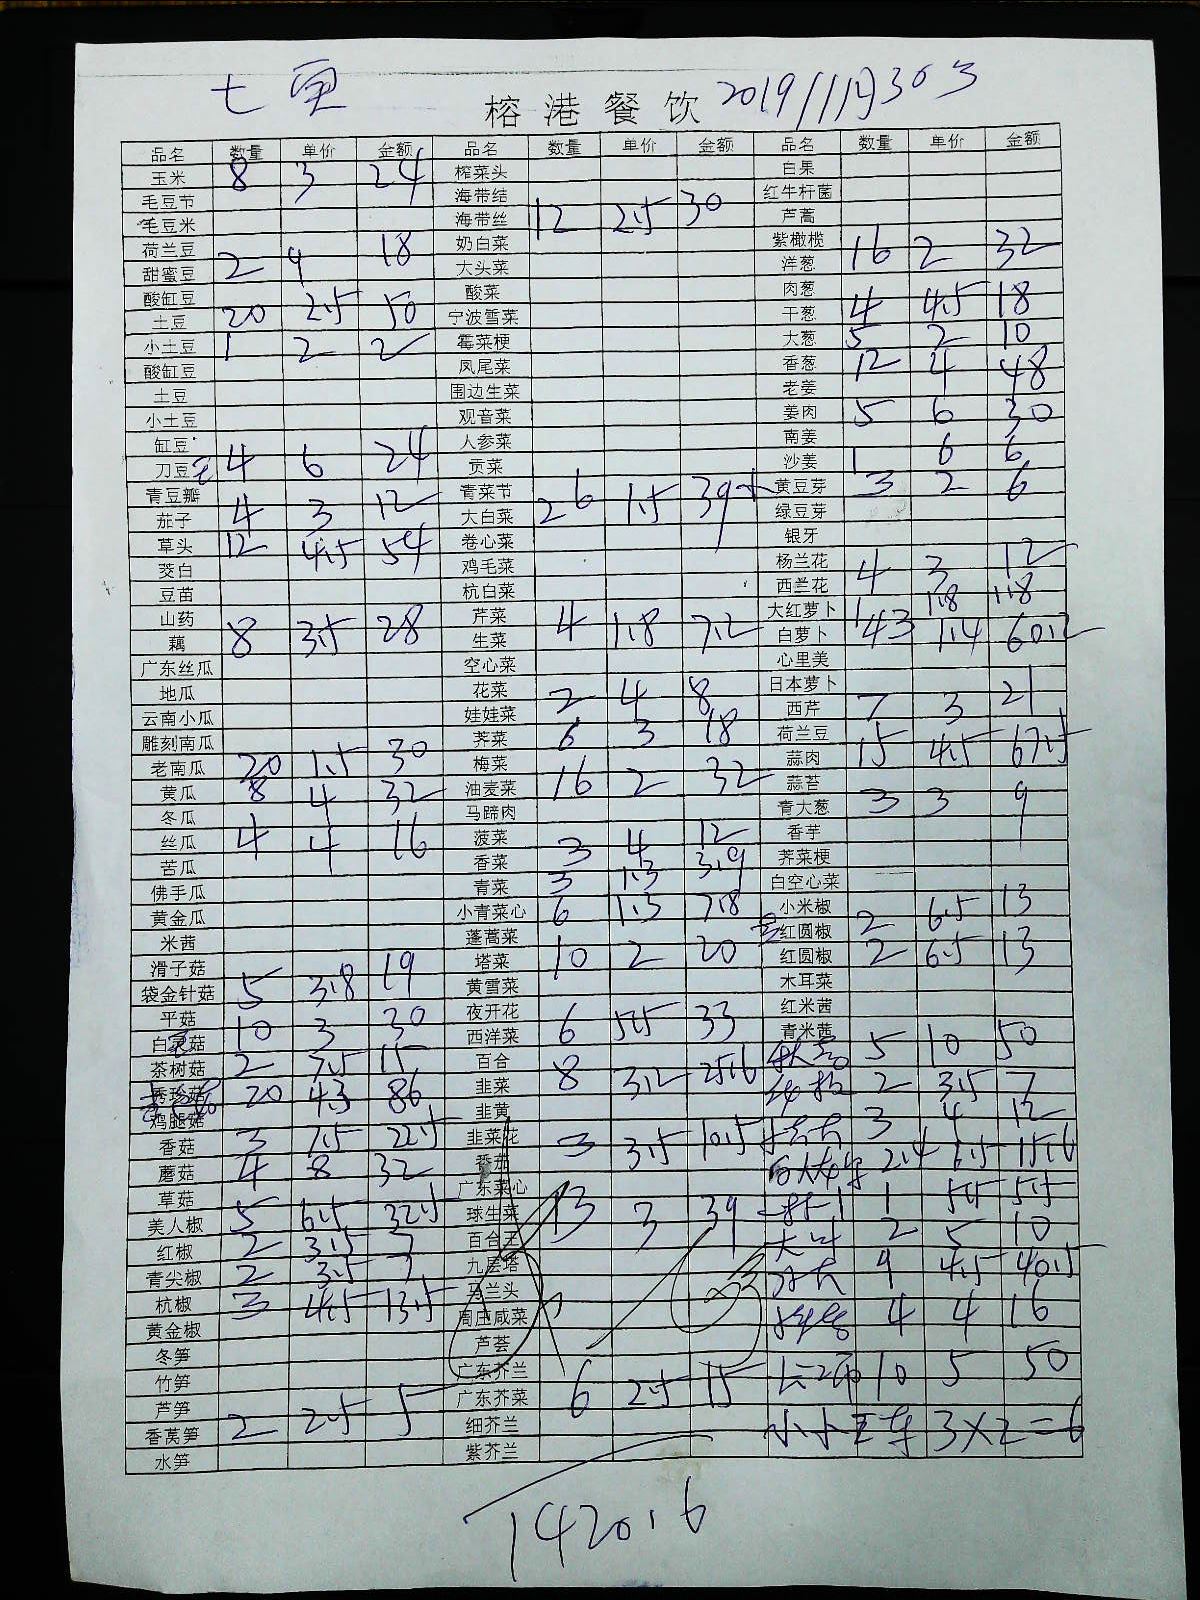 七 更 榕港餐饮 2019/11月30号
品名 数量 单价 金额 品名 数量 单价 金额 品名 数量 单价 金额
玉米 8 3 24 榨菜头 白果
毛豆节 海带结 红牛杆菌
毛豆米 海带丝 12 2.5 30 芦蒿
荷兰豆 奶白菜 紫橄榄
甜蜜豆 2 9 18 大头菜 洋葱 16 2 32
酸缸豆 酸菜 肉葱
土豆 20 2.5 50 宁波雪菜 干葱 4 4.5 18
小土豆 1 2 2 霉菜梗 大葱 5 2 10
酸缸豆 凤尾菜 香葱 12 4 48
土豆 围边生菜 老姜
小土豆 观音菜 姜肉 5 6 30
缸豆 人参菜 南姜
刀豆 4 6 24 贡菜 沙姜 1 6 6
青豆瓣 青菜节 黄豆芽 3 2 6
茄子 4 3 12 大白菜 26 1.5 39 绿豆芽
草头 12 4.5 54 卷心菜 银牙
茭白 鸡毛菜 杨兰花
豆苗 杭白菜 西兰花 4 3 12
山药 芹菜 4 1.8 7.2 大红萝卜 1 1.8 1.8
藕 8 3.5 28 生菜 白萝卜 43 1.4 60.2
广东丝瓜 空心菜 心里美
地瓜 花菜 2 4 8 日本萝卜
云南小瓜 娃娃菜 西芹 7 3 21
雕刻南瓜 荠菜 6 3 18 荷兰豆
老南瓜 20 1.5 30 梅菜 蒜肉 15 4.5 67.5
黄瓜 8 4 32 油麦菜 16 2 32 蒜苔
冬瓜 马蹄肉 青大葱 3 3 9
丝瓜 4 4 16 菠菜 3 4 12 香芋
苦瓜 香菜 荠菜梗
佛手瓜 青菜 3 1.3 3.9 白空心菜
黄金瓜 小青菜心 6 1.3 7.8 小米椒
米茜 蓬蒿菜 红圆椒 2 6.5 13
滑子菇 塔菜 10 2 20 红圆椒 2 6.5 13
袋金针菇 5 3.8 19 黄雪菜 木耳菜
平菇 夜开花 红米茜
白灵菇 10 3 30 西洋菜 6 5.5 33 青米茜
茶树菇 2 7.5 15 百合 5 10 50
秀珍菇 20 4.3 86 韭菜 8 3.2 25.6 2 3.5 7
鸡腿菇 韭黄 3 4 12
香菇 3 7.5 22.5 韭菜花 3 3.5 10.5
蘑菇 4 8 32 番茄 2.4 6.5 15.6
草菇 广东菜心 1 5.5 5.5
美人椒 5 6.5 32.5 球生菜 13 3 39
红椒 2 3.5 7 百合王 2 5 10
青尖椒 2 3.5 7 九层塔 9 4.5 40.5
杭椒 3 4.5 13.5 马兰头
黄金椒 周庄咸菜 4 4 16
冬笋 芦荟
竹笋 广东芥兰 10 5 50
芦笋 广东芥菜 6 2.5 15
香莴笋 2 2.5 5 细芥兰 3×2=6
水笋 紫芥兰
1420.6